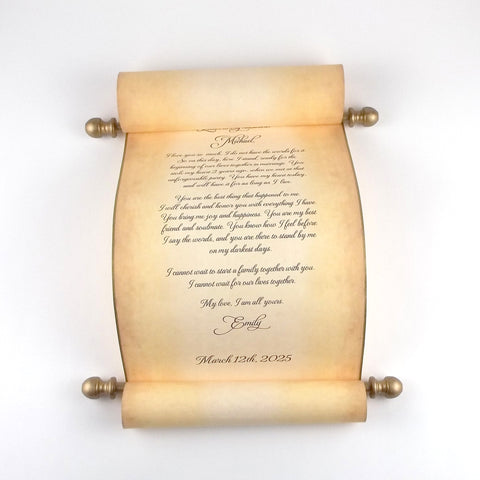 Michael,
I love you so much, I do not have the words for it.
So on this day, here I stand, ready for the
beginning of our lives together in marriage. You
took my heart 2 years ago, when we met at that
unforgettable party. You have my heart today,
and will have it for as long as I live.
You are the best thing that happened to me.
I will cherish and honor you with everything I have.
You bring me joy and happiness. You are my best
friend and soulmate. You know how I feel before
I say the words, and you are there to stand by me
on my darkest days.
I cannot wait to start a family together with you.
I cannot wait for our lives together.
My love, I am all yours.
Emily
March 12th, 2025